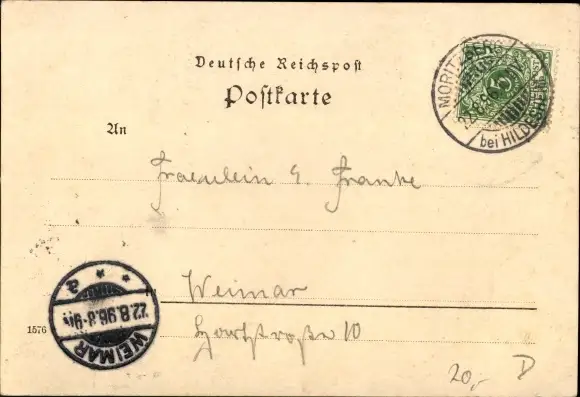 Deutsche Reichspost
Postkarte
MORITZBERG
bei HILDESHEIM
5
An
Fraeulein E. Franke
Weimar
22.8.96.8-9
WEIMAR
1576
10
20,- D